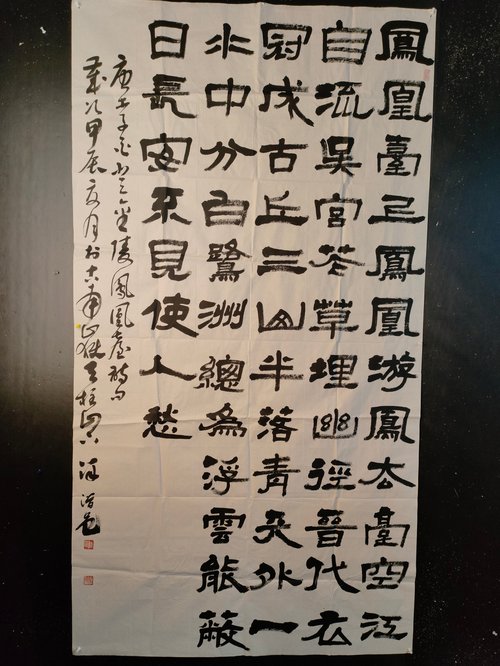 鳳凰臺上鳳凰游鳳去臺空江
自流吳宮花草埋幽徑晉代衣
冠成古丘三山半落青天外一
水中分白鷺洲總為浮雲能蔽
日長安不見使人愁
唐陵鳳凰臺詩句
歲次甲辰夏月於古南嶽天柱山下